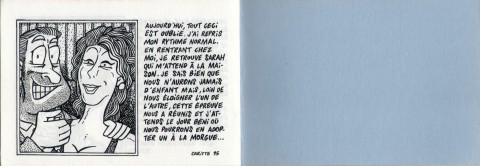 AUJOURD'HUI, TOUT CECI
EST OUBLIÉ. J'AI REPRIS
MON RYTHME NORMAL.
EN RENTRANT CHEZ
MOI, JE RETROUVE SARAH
QUI M'ATTEND À LA MAI-
SON. JE SAIS BIEN QUE
NOUS N'AURONS JAMAIS
D'ENFANT MAIS, LOIN DE
NOUS ÉLOIGNER L'UN DE
L'AUTRE, CETTE ÉPREUVE
NOUS A RÉUNIS ET J'AT-
TENDS LE JOUR BÉNI OÙ
NOUS POURRONS EN ADOP-
TER UN À LA MORGUE...
CARITTE 95